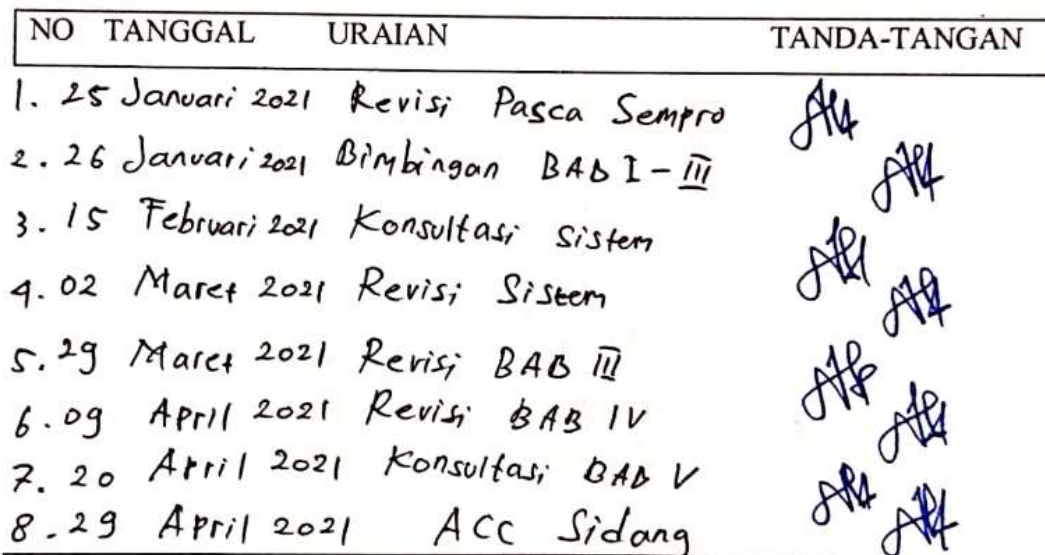 NO TANGGAL URAIAN TANDA-TANGAN
1. 25 Januari 2021 Revisi Pasca Sempro
2. 26 Januari 2021 Bimbingan BAB I - III
3. 15 Februari 2021 Konsultasi Sistem
4. 02 Maret 2021 Revisi Sistem
5. 29 Maret 2021 Revisi BAB III
6. 09 April 2021 Revisi BAB IV
7. 20 April 2021 Konsultasi BAB V
8. 29 April 2021 ACC Sidang